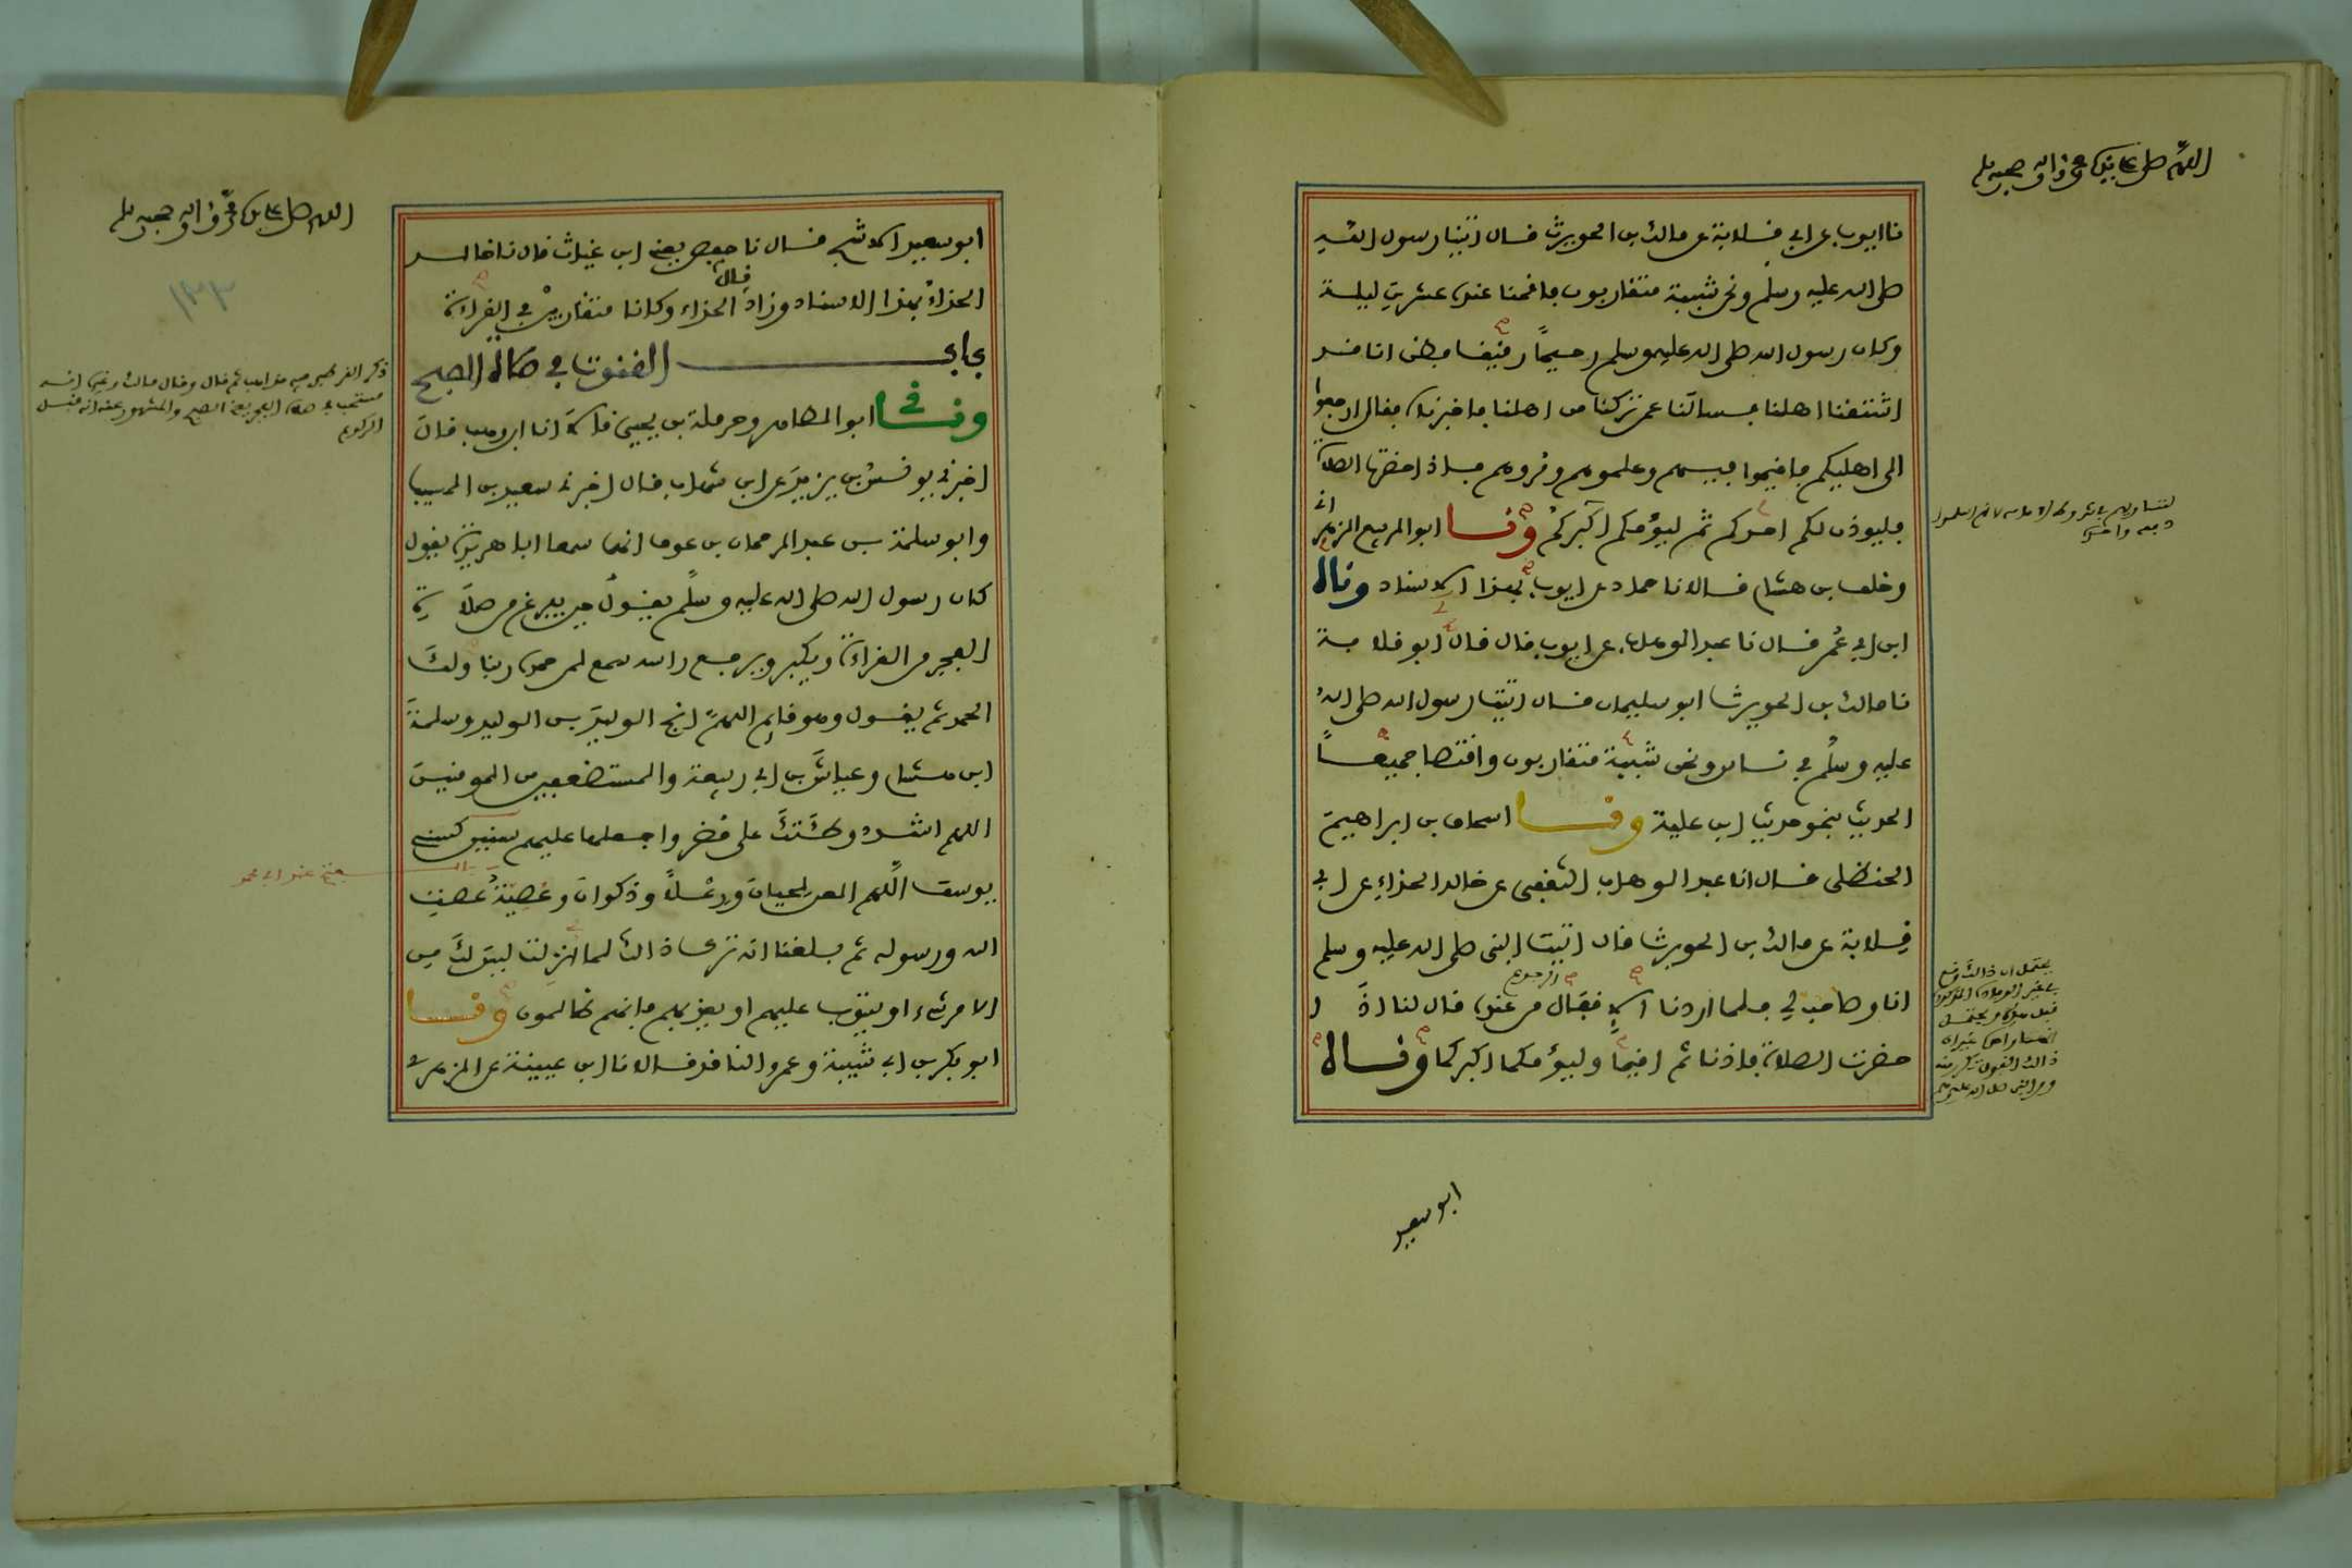 اللهم صل على سيدنا محمد واله وصحبه وسلم
نا ايوب عن ابي قلابة عن مالك بن الحويرث قال اتينا رسول الله
صلى الله عليه وسلم ونحن شببة متقاربون فاقمنا عنده عشرين ليلة
وكان رسول الله صلى الله عليه وسلم رحيما رفيقا فظن انا قد
اشتقنا اهلنا فسالنا عن من تركنا من اهلنا فاخبرناه فقال ارجعوا
الى اهليكم فاقيموا فيهم وعلموهم ومروهم فاذا حضرت الصلاة
فليوذن لكم احدكم ثم ليؤمكم اكبركم ونا ابو الربيع الزهراني
وخلف بن هشام قالا نا حماد عن ايوب بهذا الاسناد وناه
ابن ابي عمر قال نا عبد الوهاب عن ايوب قال قال ابو قلابة
نا مالك بن الحويرث ابو سليمان قال اتيت رسول الله صلى الله
عليه وسلم في ناس ونحن شببة متقاربون واقتصا جميعا
الحديث بنحو حديث ابن علية ونا اسحاق بن ابراهيم
الحنظلي قال انا عبد الوهاب الثقفي عن خالد الحذاء عن ابي
قلابة عن مالك بن الحويرث قال اتيت النبي صلى الله عليه وسلم
انا وصاحب لي فلما اردنا الاقفال من عنده قال لنا اذا
حضرت الصلاة فاذنا ثم اقيما وليؤمكما اكبركما وناه
يحتمل ان ذلك وقع
ابو سعيد
اللهم صل على سيدنا محمد واله وصحبه وسلم
١٣٣
ابو سعيد الاشج قال نا حفص يعني ابن غياث قال نا خالد
الحذاء بهذا الاسناد وزاد قال الحذاء وكانا متقاربين في القراءة
باب القنوت في صلاة الصبح
وني ابو الطاهر وحرملة بن يحيى قالا انا ابن وهب قال
اخبرني يونس بن يزيد عن ابن شهاب قال اخبرني سعيد بن المسيب
وابو سلمة بن عبد الرحمان بن عوف انهما سمعا ابا هريرة يقول
كان رسول الله صلى الله عليه وسلم يقول حين يفرغ من صلاة
الفجر من القراءة ويكبر ويرفع راسه سمع الله لمن حمده ربنا ولك
الحمد ثم يقول وهو قايم اللهم انج الوليد بن الوليد وسلمة
ابن هشام وعياش بن ابي ربيعة والمستضعفين من المومنين
اللهم اشدد وطئتك على مضر واجعلها عليهم سنين كسني
يوسف اللهم العن لحيان ورعلا وذكوان وعصية عصت
الله ورسوله ثم بلغنا انه ترك ذلك لما انزلت ليس لك من
الامر شيء او يتوب عليهم او يعذبهم فانهم ظالمون ونا
ابو بكر بن ابي شيبة وعمرو الناقد قالا نا ابن عيينة عن الزهري